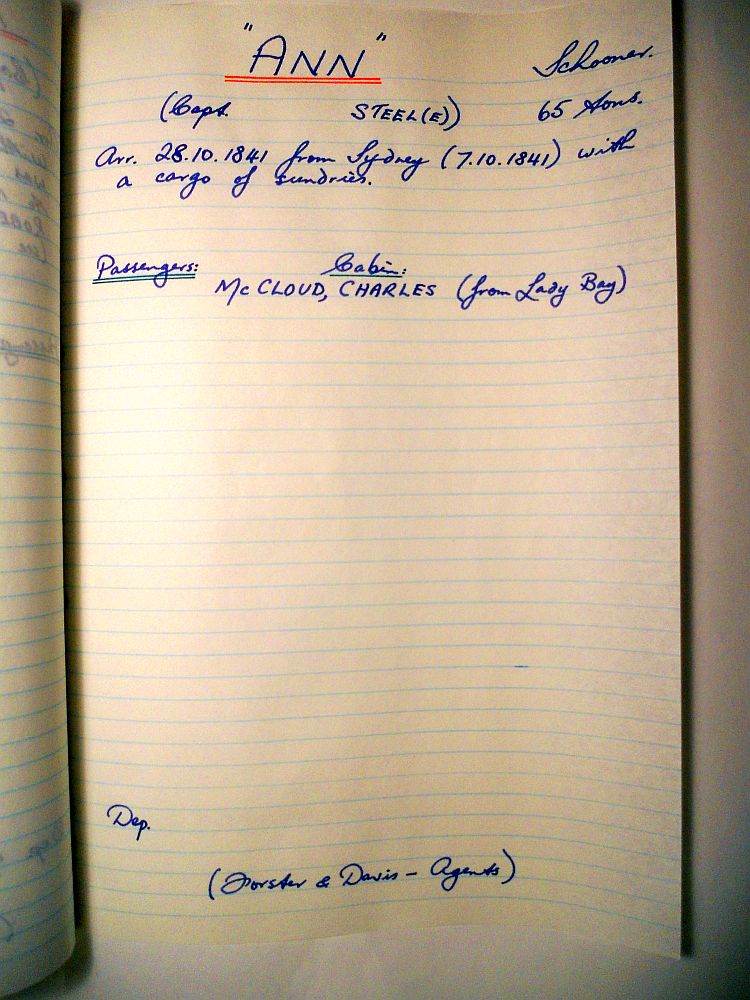 "ANN"
Schooner.
(Capt. STEEL(E)) 65 tons.
Arr. 28.10.1841 from Sydney (7.10.1841) with
a cargo of sundries.
Passengers: Cabin:
McCLOUD, CHARLES (from Lady Bay)
Dep.
(Forster & Davis - Agents)